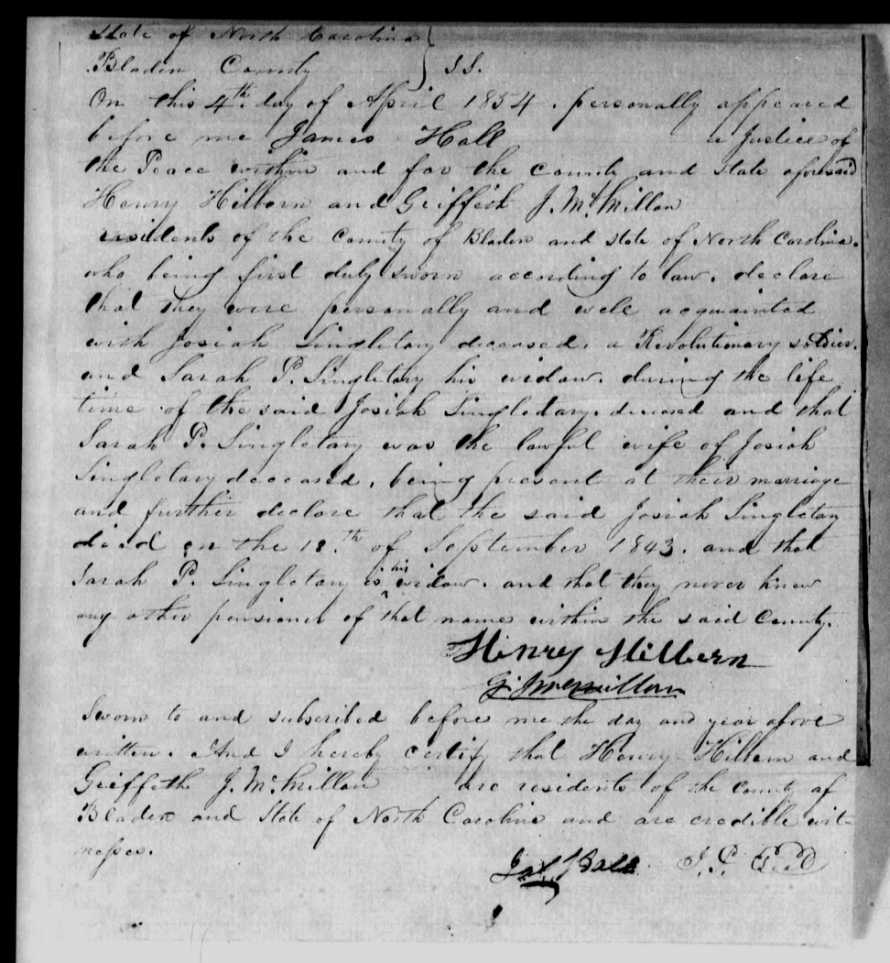 State of North Carolina
Bladen County } S.S.
On this 4th day of April 1854. personally appeared
before me James Hall a Justice of
the Peace within and for the County and State aforesaid
Henry Hilborn and Griffeth J. McMillan
residents of the County of Bladen and State of North Carolina.
who being first duly sworn according to law. declare
that they were personally and well acquainted
with Josiah Singletary deceased, a Revolutionary soldier.
and Sarah P. Singletary his widow. during the life
time of the said Josiah Singletary. deceased and that
Sarah P. Singletary was the lawful wife of Josiah
Singletary deceased, being present at their marriage
and further declare that the said Josiah Singletary
died on the 18.th of September 1843. and that
Sarah P. Singletary is his widow. and that they never knew
any other pensioner of that name within the said County.
Henry Hilbern
G. J. McMillan
Sworn to and subscribed before me the day and year above
written. And I hereby certify that Henry Hilbern and
Griffethe J. McMillan are residents of the County of
Bladen and State of North Carolina and are credible wit-
nesses.
J.P.